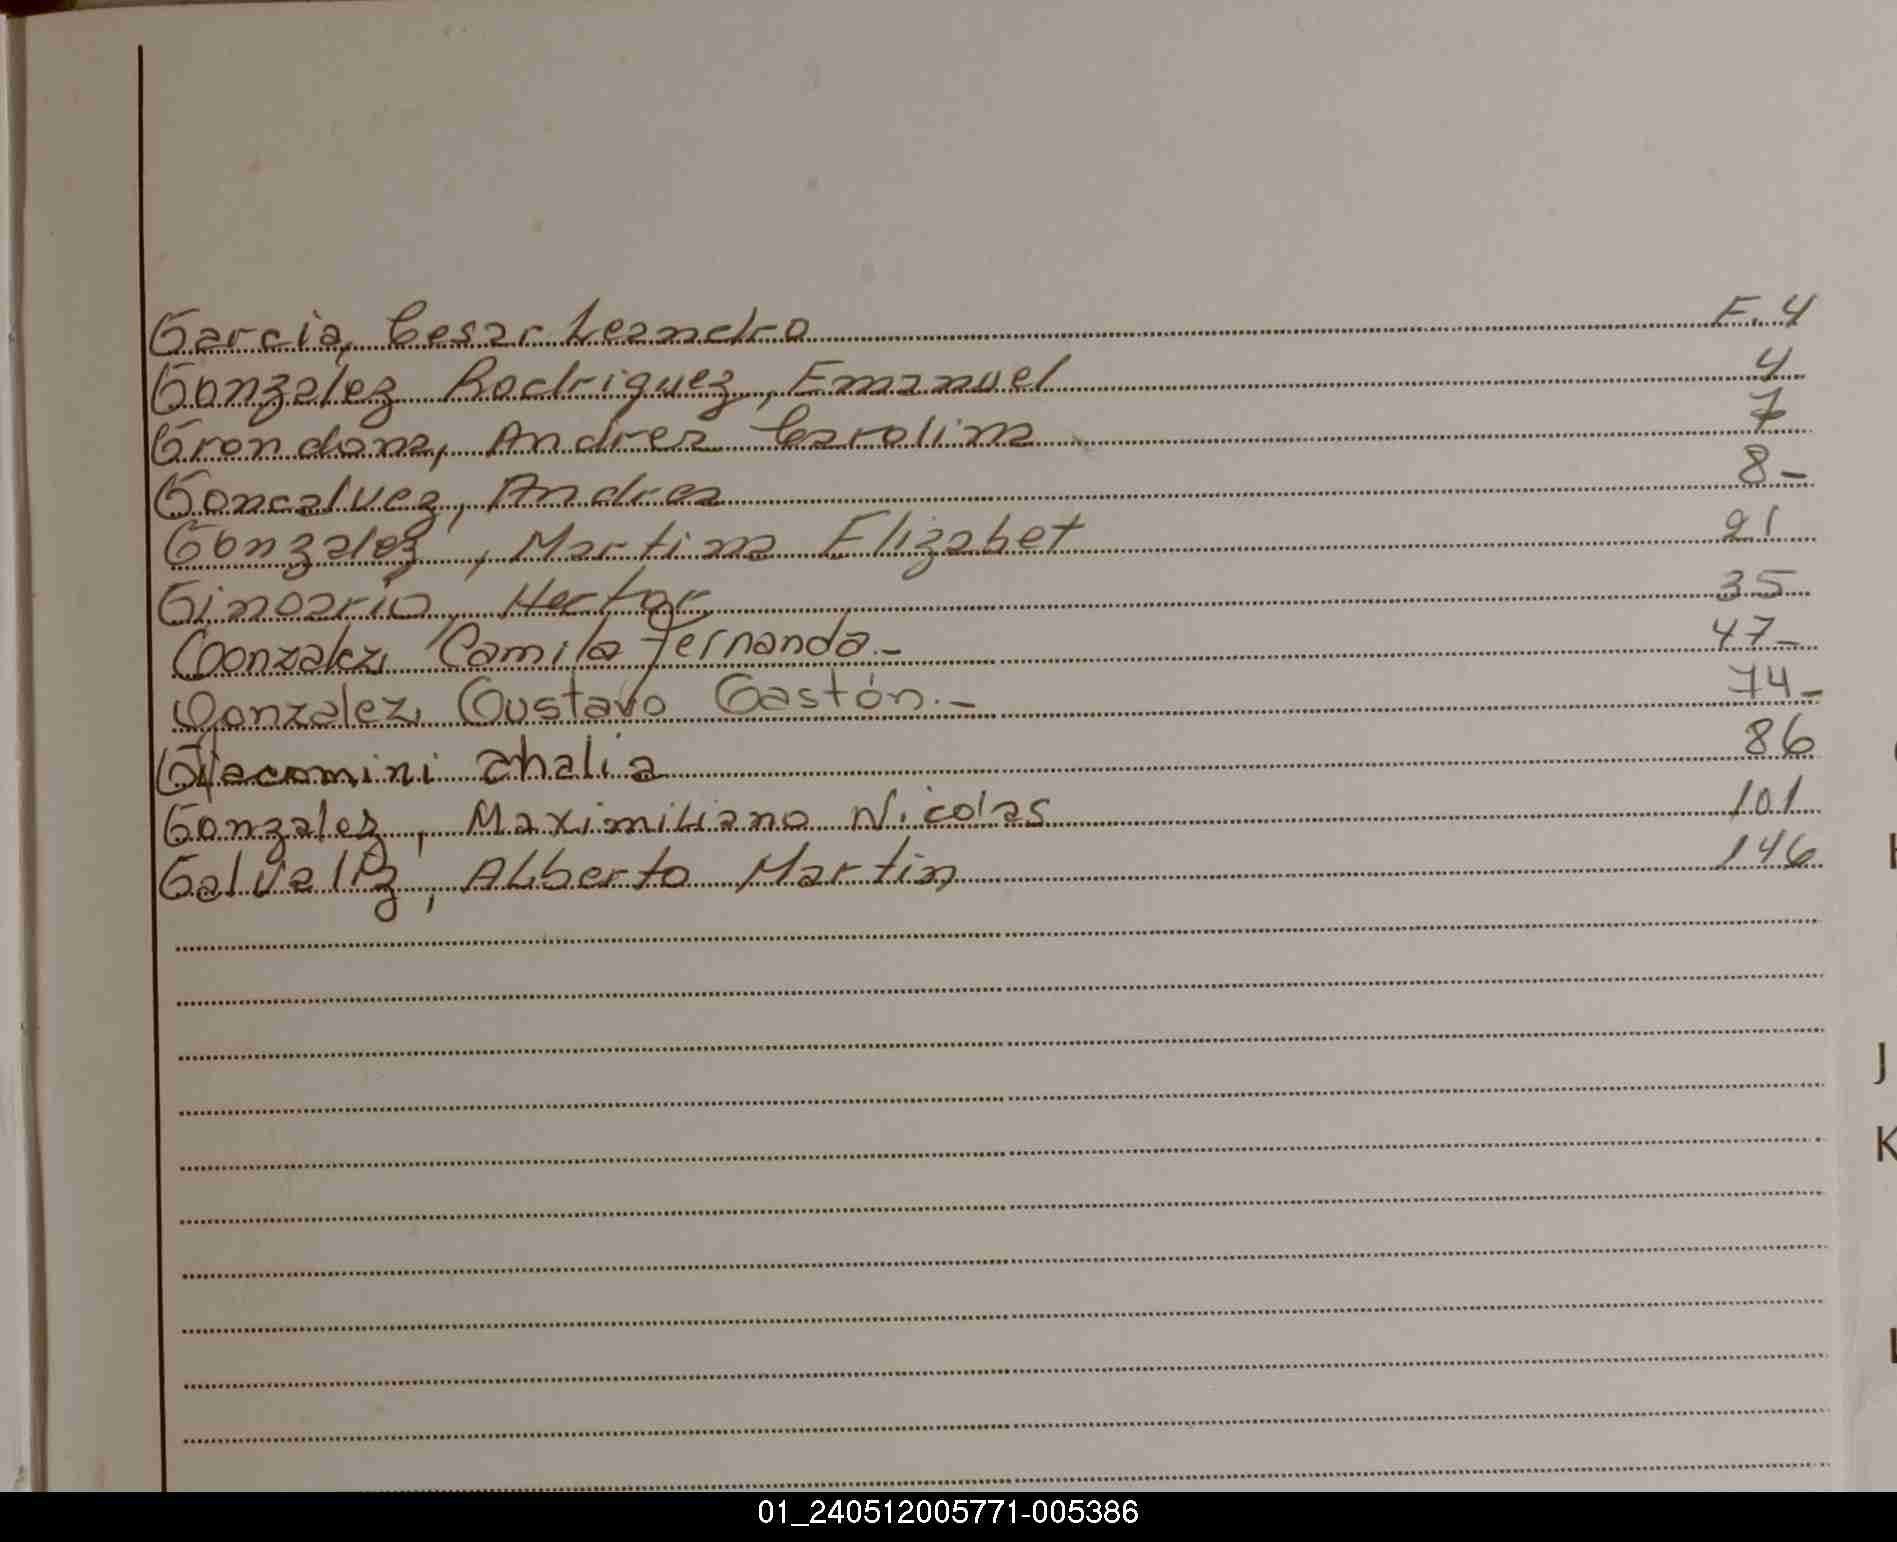 Garcia, Cesar Leandro F. 4
Gonzalez Rodriguez, Emanuel 4
Grondona, Andrea Carolina 7
Goncalvez, Andrea 8-
Gonzalez, Martina Elizabet 21
Ginoario, Hector 35
Gonzalez, Camila Fernanda.- 47-
Gonzalez, Gustavo Gastón.- 74-
Giacomini thalia 86
Gonzalez, Maximiliano Nicolas 101
Galvaliz, Alberto Martin 146
J
K
01_240512005771-005386